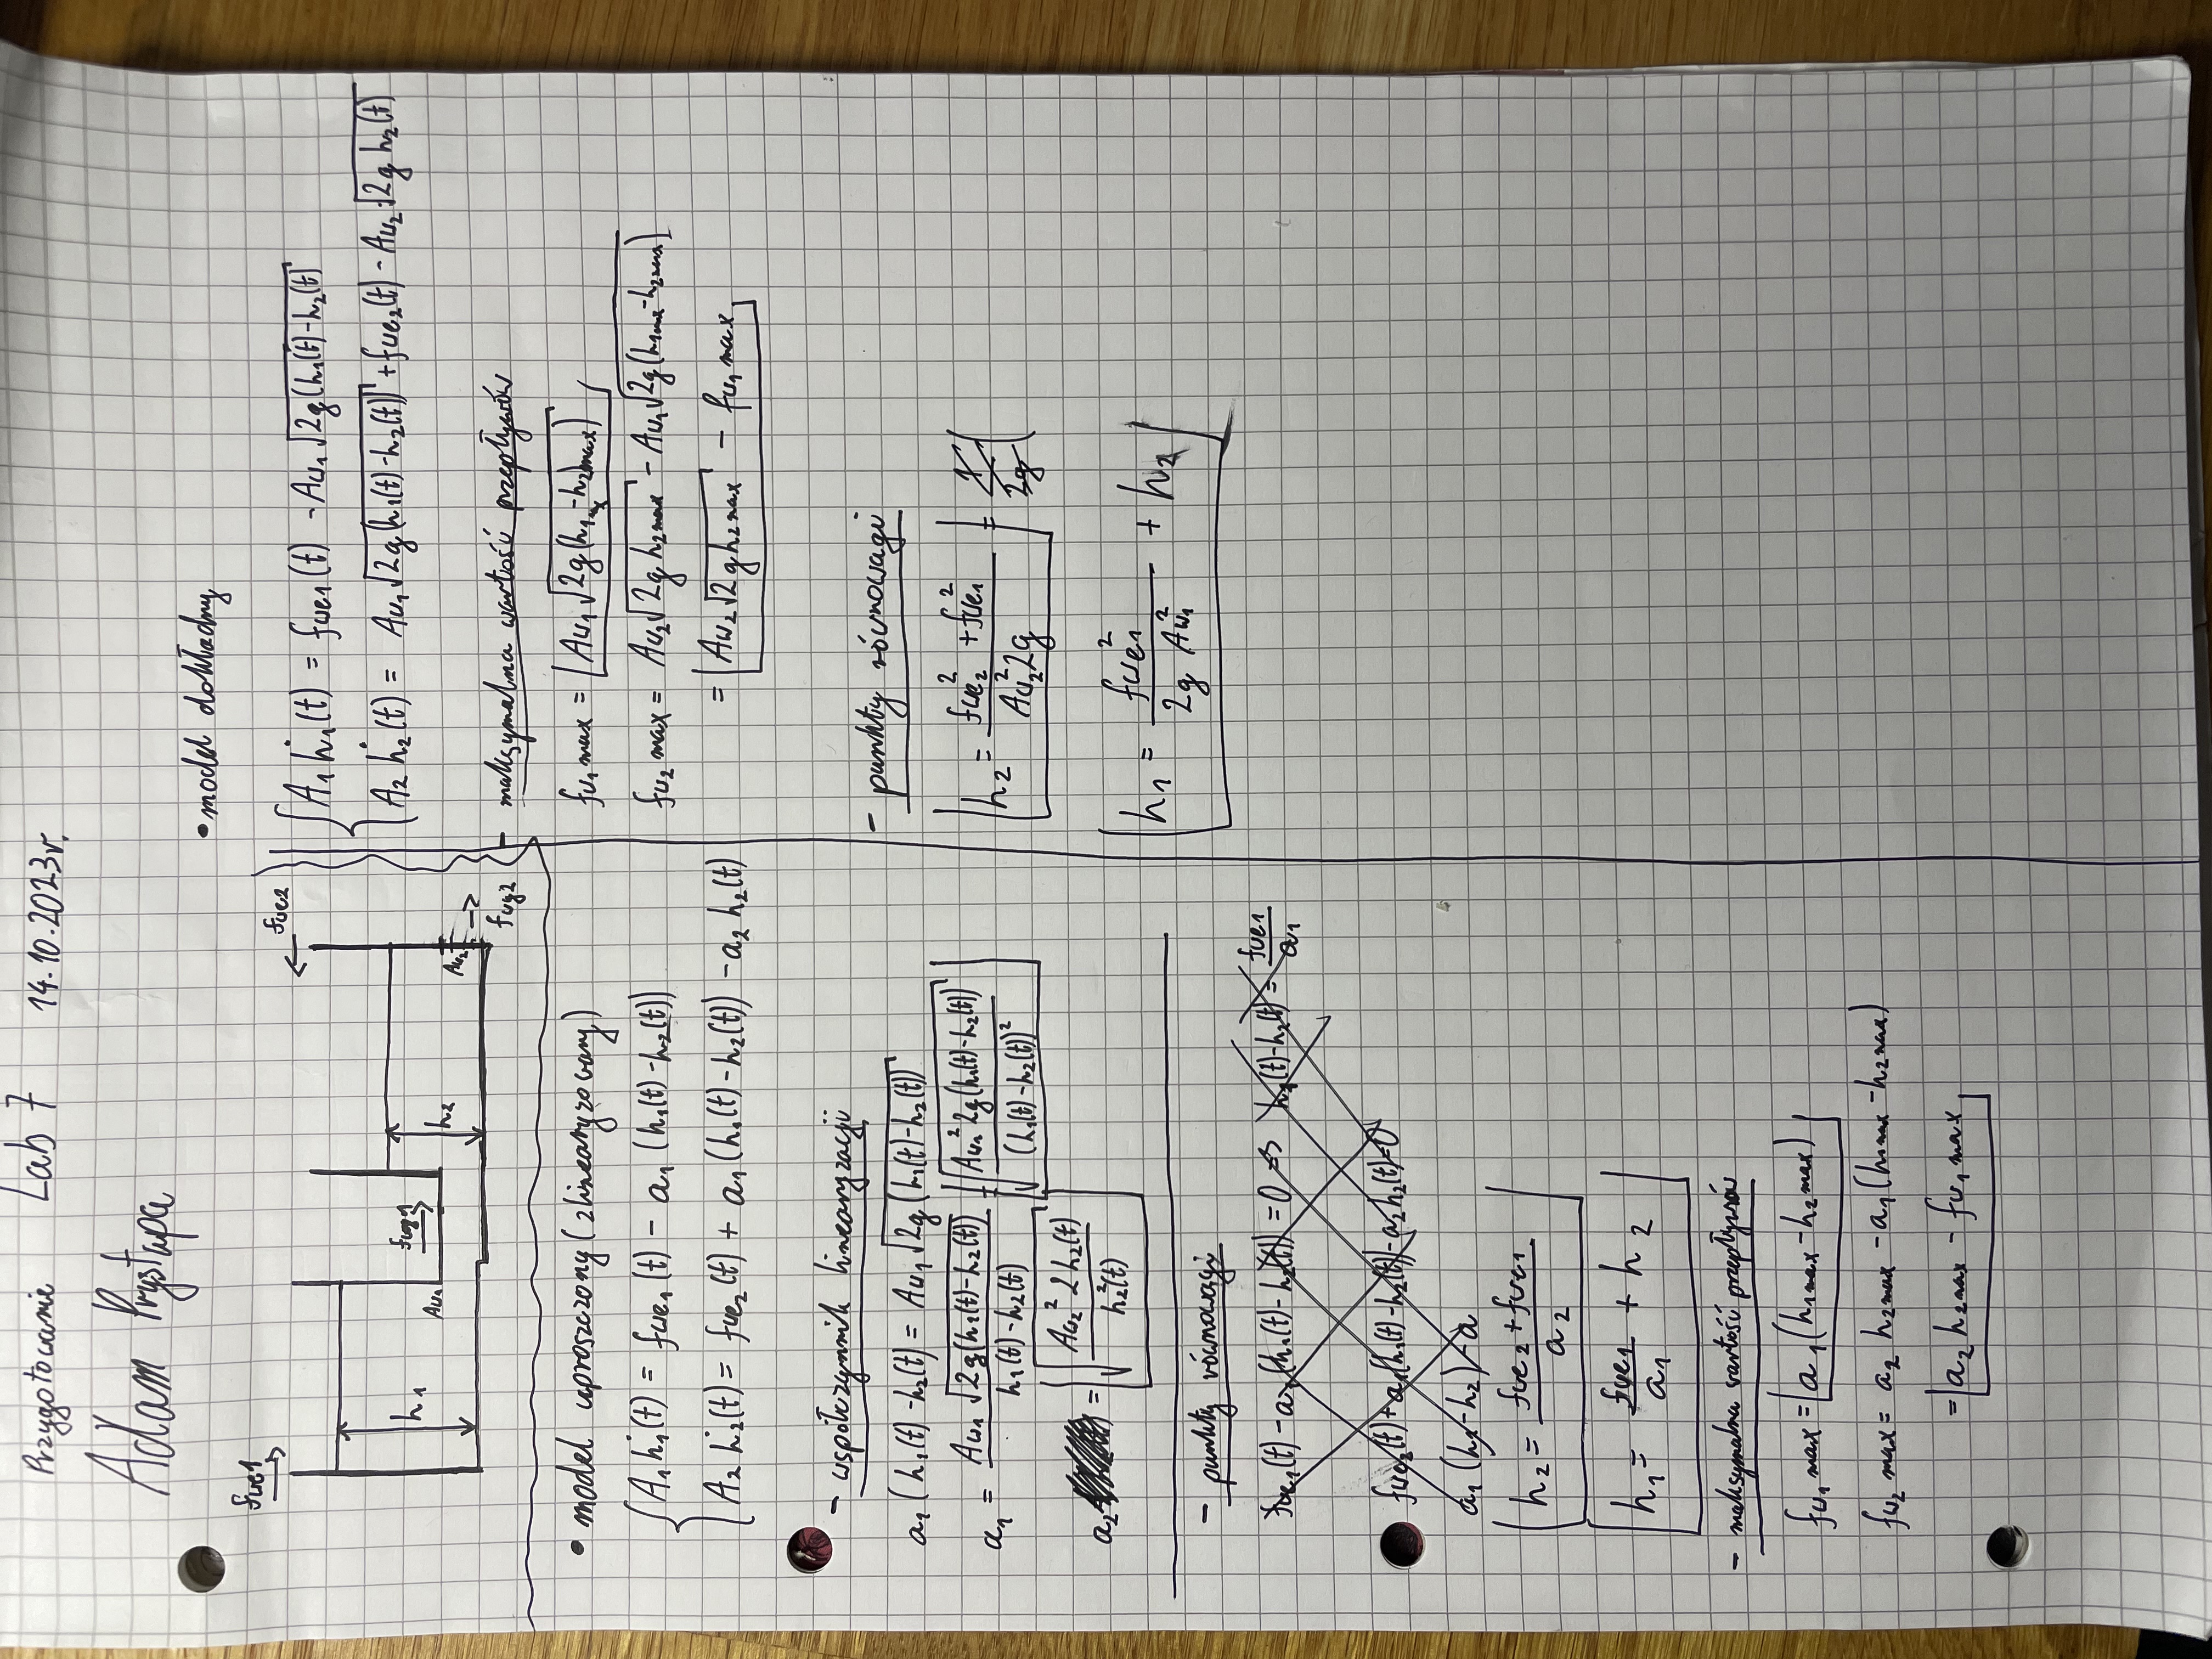 Przygotowanie Lab 7 14.10.2023r.
Adam Prystupa
fwe1
fwe2
h1
Aw1
fwy1
h2
Aw2
fwy2
• model uproszczony (zlinearyzowany)
A₁ ḣ₁(t) = fwe₁(t) - a₁ (h₁(t) - h₂(t))
A₂ ḣ₂(t) = fwe₂(t) + a₁ (h₁(t) - h₂(t)) - a₂ h₂(t)
- współczynnik linearyzacji
a₁ (h₁(t) - h₂(t) = Aw₁ √2g (h₁(t) - h₂(t))
a₁ = Aw₁ √2g(h₁(t) - h₂(t)) / h₁(t) - h₂(t) = √Aw₁² 2g(h₁(t) - h₂(t)) / (h₁(t) - h₂(t))²
a₂ = √Aw₂² 2 h₂(t) / h₂²(t)
- punkty równowagi
fwe₁(t) - a₁ (h₁(t) - h₂(t)) = 0 => h₁(t) - h₂(t) = fwe₁ / a₁
fwe₂(t) + a₁(h₁(t) - h₂(t)) - a₂ h₂(t) = 0
a₁ (h₁ - h₂) - a
h₂ = fwe₂ + fwe₁ / a₂
h₁ = fwe₁ / a₁ + h₂
- maksymalna wartość przepływów
fw₁ max = a₁ (h₁max - h₂max)
fw₂ max = a₂ h₂max - a₁ (h₁max - h₂max)
= a₂ h₂max - fw₁ max
• model dokładny
A₁ ḣ₁(t) = fwe₁(t) - Aw₁ √2g(h₁(t) - h₂(t)
A₂ ḣ₂(t) = Aw₁ √2g(h₁(t) - h₂(t)) + fwe₂(t) - Aw₂ √2g h₂(t)
- maksymalna wartość przepływów
fw₁ max = Aw₁ √2g(h₁max - h₂)max)
fw₂ max = Aw₂ √2g h₂max - Aw₁ √2g(h₁max - h₂max)
= Aw₂ √2g h₂max - fw₁ max
- punkty równowagi
h₂ = fwe₂² + fwe₁² / Aw₂² 2g = 1 / 2g (
h₁ = fwe₁² / 2g Aw₁² + h₂